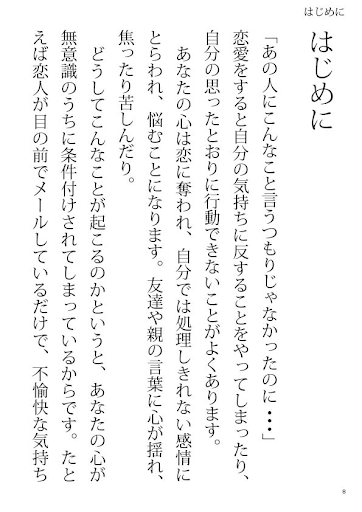 はじめに
はじめに
「あの人にこんなこと言うつもりじゃなかったのに・・・」
恋愛をすると自分の気持ちに反することをやってしまったり、
自分の思ったとおりに行動できないことがよくあります。
あなたの心は恋に奪われ、自分では処理しきれない感情に
とらわれ、悩むことになります。友達や親の言葉に心が揺れ、
焦ったり苦しんだり。
どうしてこんなことが起こるのかというと、あなたの心が
無意識のうちに条件付けされてしまっているからです。たと
えば恋人が目の前でメールしているだけで、不愉快な気持ち
8